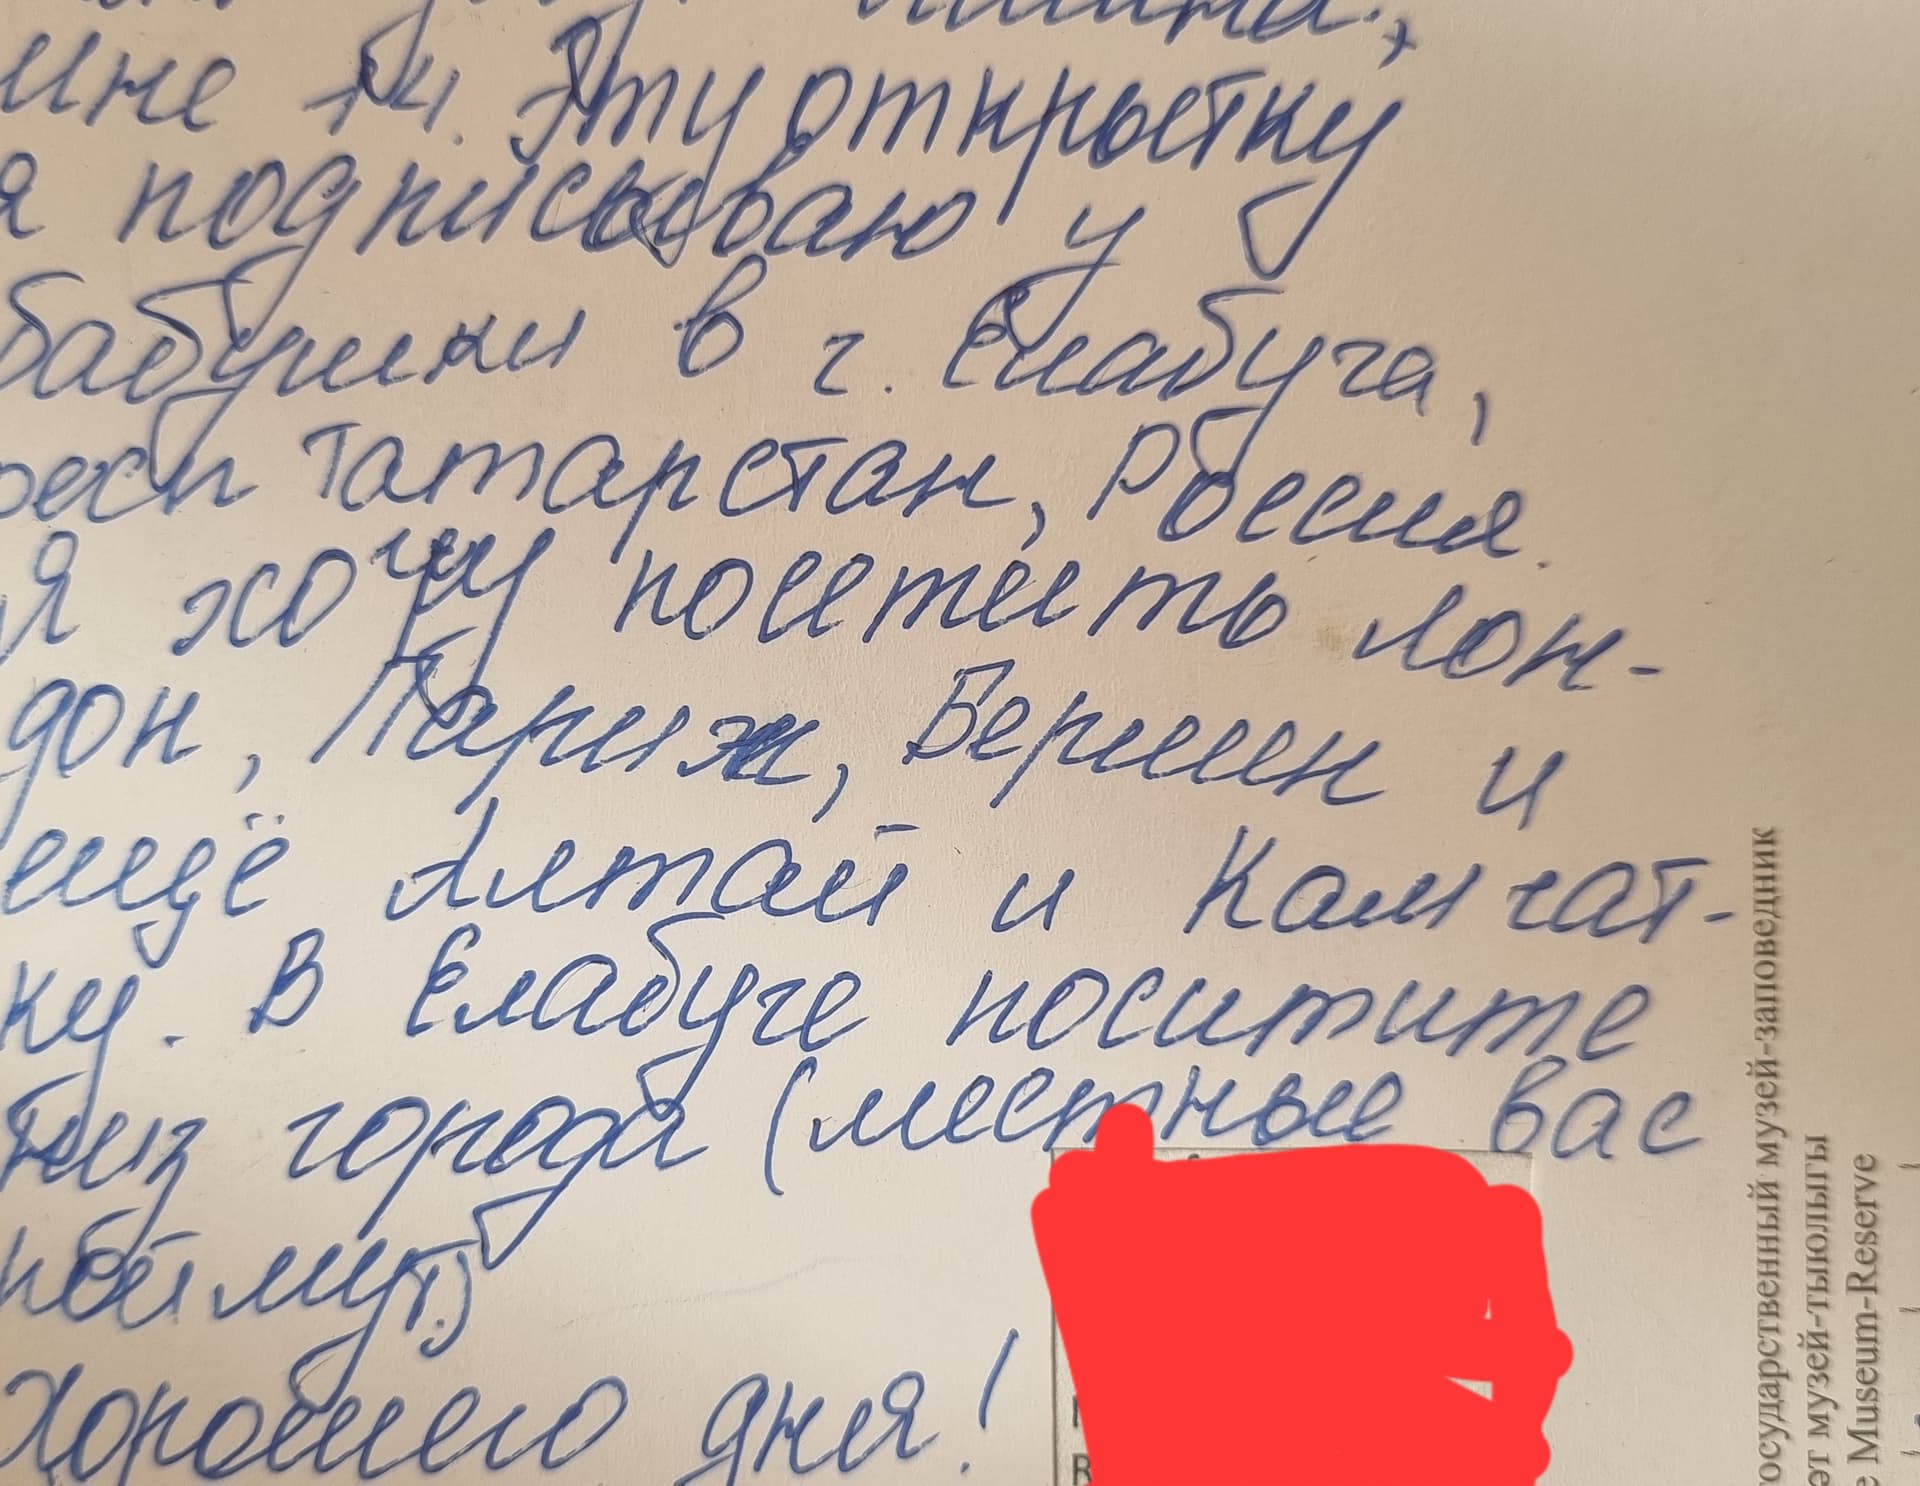 мне 14. Эту открытку
я подписываю у
бабушки в г. Елабуга,
Татарстан, Россия.
Я хочу посетить Лон-
дон, Париж, Берлин и
ещё Алтай и Камчат-
ку. В Елабуге поситите
города (местные вас
поймут)
Хорошего дня!
государственный музей-заповедник
музей-тыюлыгы
Museum-Reserve